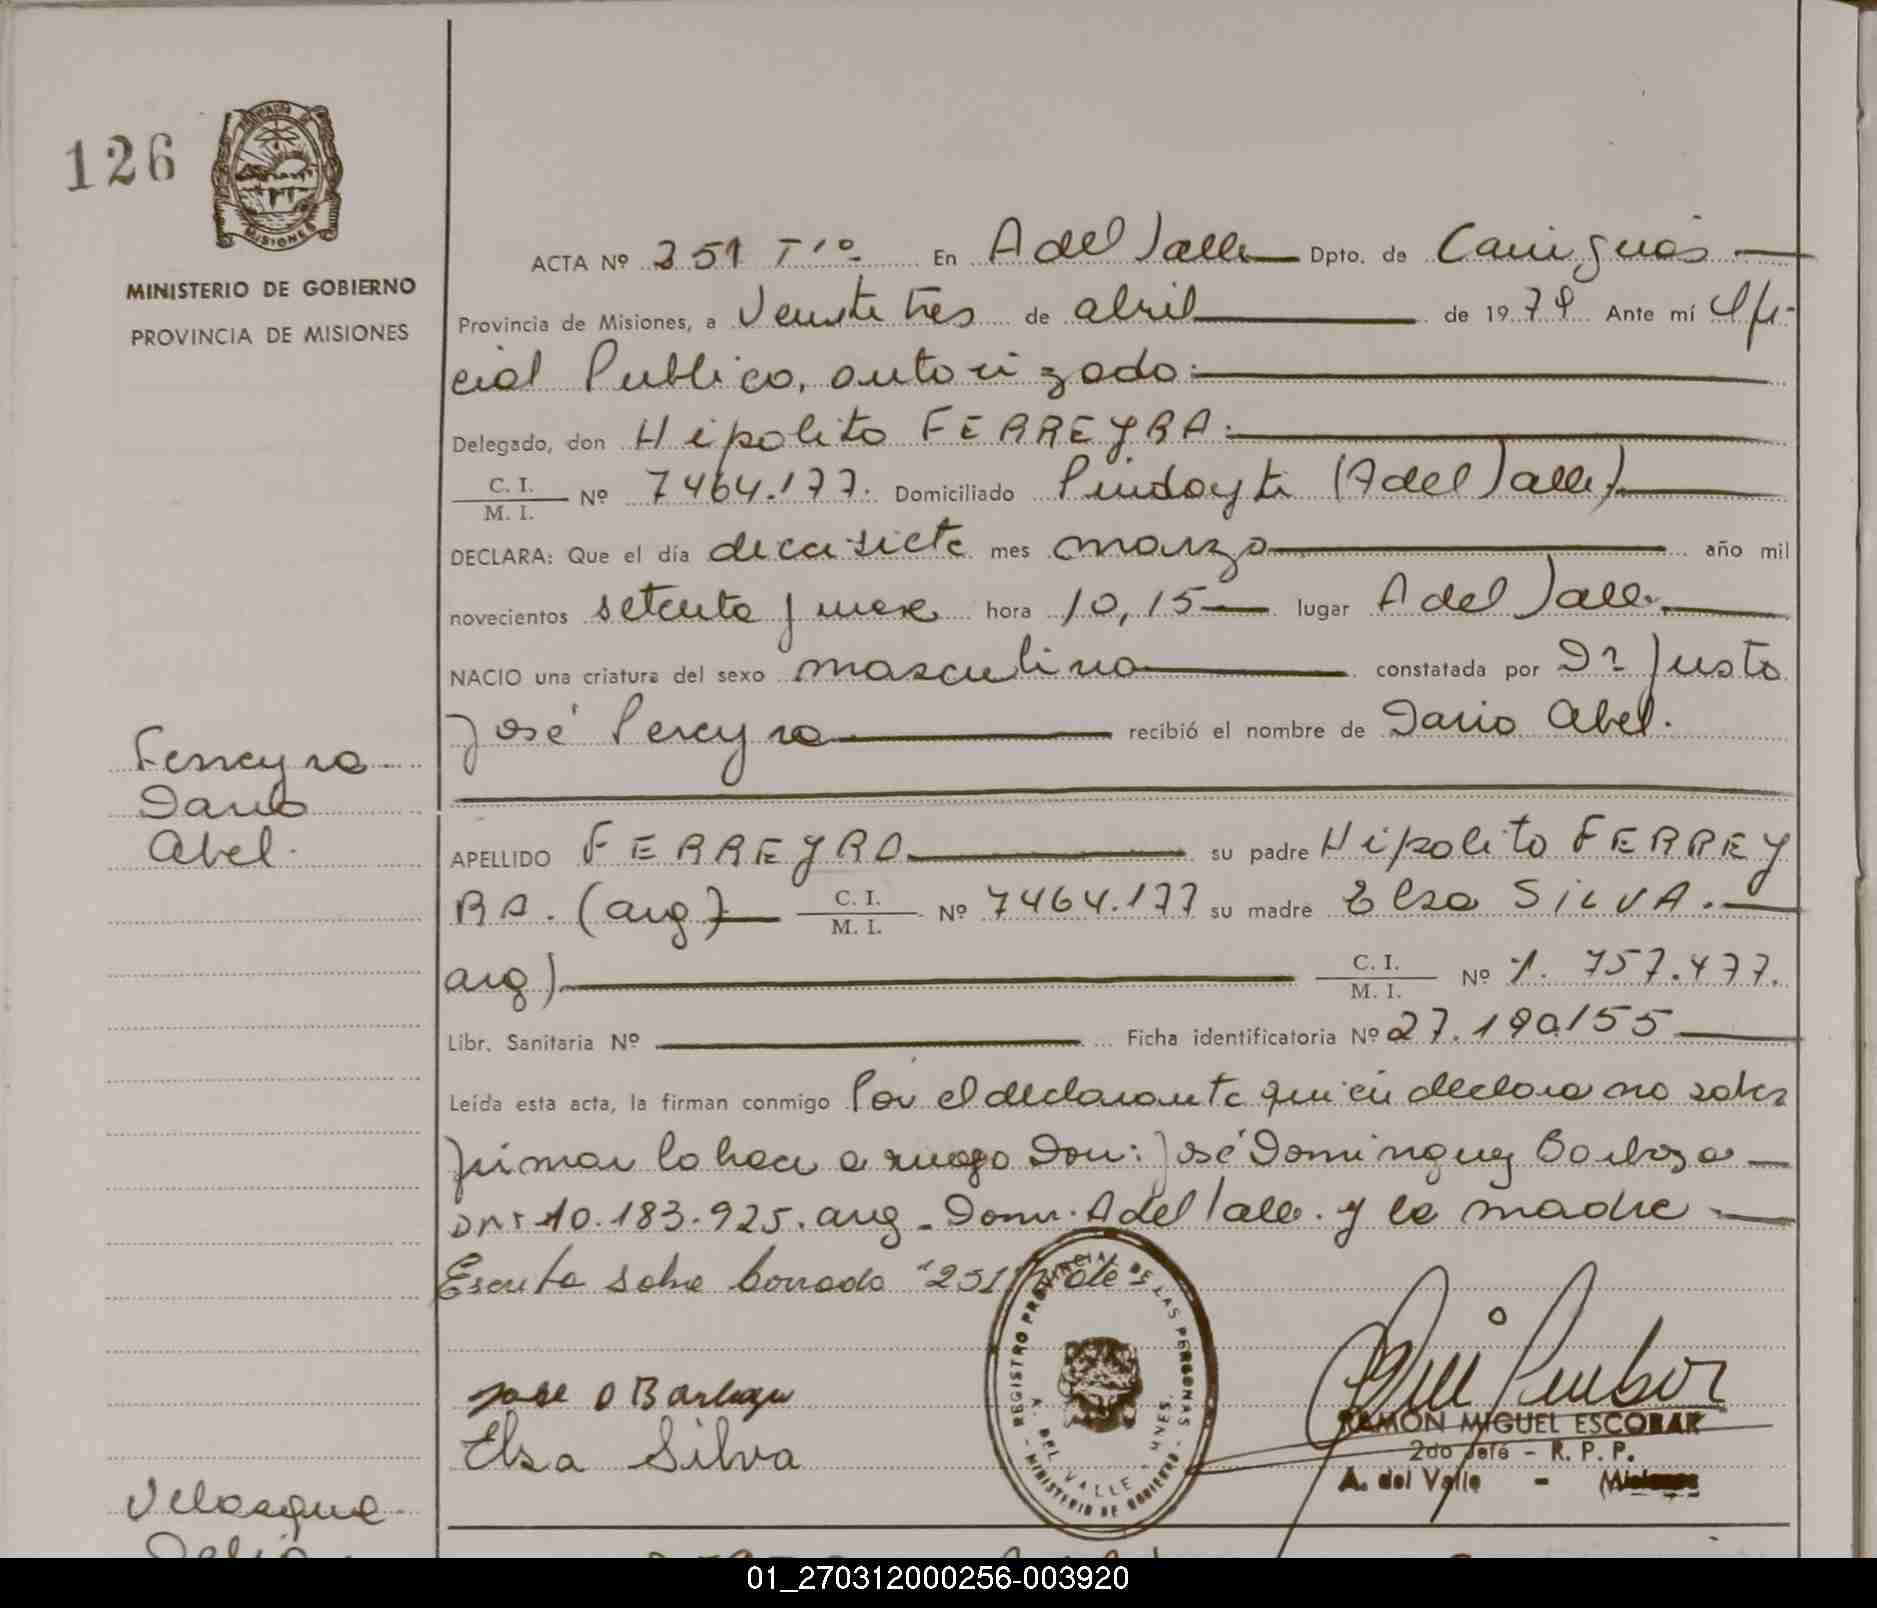 126
MISIONES
MINISTERIO DE GOBIERNO
PROVINCIA DE MISIONES
ACTA Nº 251 Tº En A del Valle Dpto. de Cainguás
Provincia de Misiones, a Veinte tres de abril de 1979 Ante mí Ofi-
cial Publico, autorizado:
Delegado, don Hipolito FERREYRA:
C. I.
M. I. Nº 7464.177. Domiciliado Pindayti (A del Valle)
DECLARA: Que el día diecisiete mes marzo año mil
novecientos setenta y nueve hora 10,15 lugar A del Valle.
NACIO una criatura del sexo masculino constatada por Dr Justo
José Pereyra recibió el nombre de Dario Abel.
Ferreyra
Dario
Abel.
APELLIDO FERREYRA su padre Hipolito FERREY
RA. (arg) C. I.
M. I. Nº 7464.177 su madre Elsa SILVA.
arg) C. I.
M. I. Nº 1. 757.477.
Libr. Sanitaria Nº Ficha identificatoria Nº 27.190.155
Leída esta acta, la firman conmigo Por el declarante quien declara no saber
firmar lo hace a ruego Don: José Dominguez Barboza
DNI 10.183.925. arg. Domi. A del Valle. y la madre
Escrito sobre borrado "251" Vale
REGISTRO PROVINCIAL DE LAS PERSONAS
A. DEL VALLE - MNES.
MINISTERIO DE GOBIERNO
Jose D Barboza
Elsa Silva
RAMON MIGUEL ESCOBAR
2do Jefe - R. P. P.
A. del Valle - Misiones
01_270312000256-003920